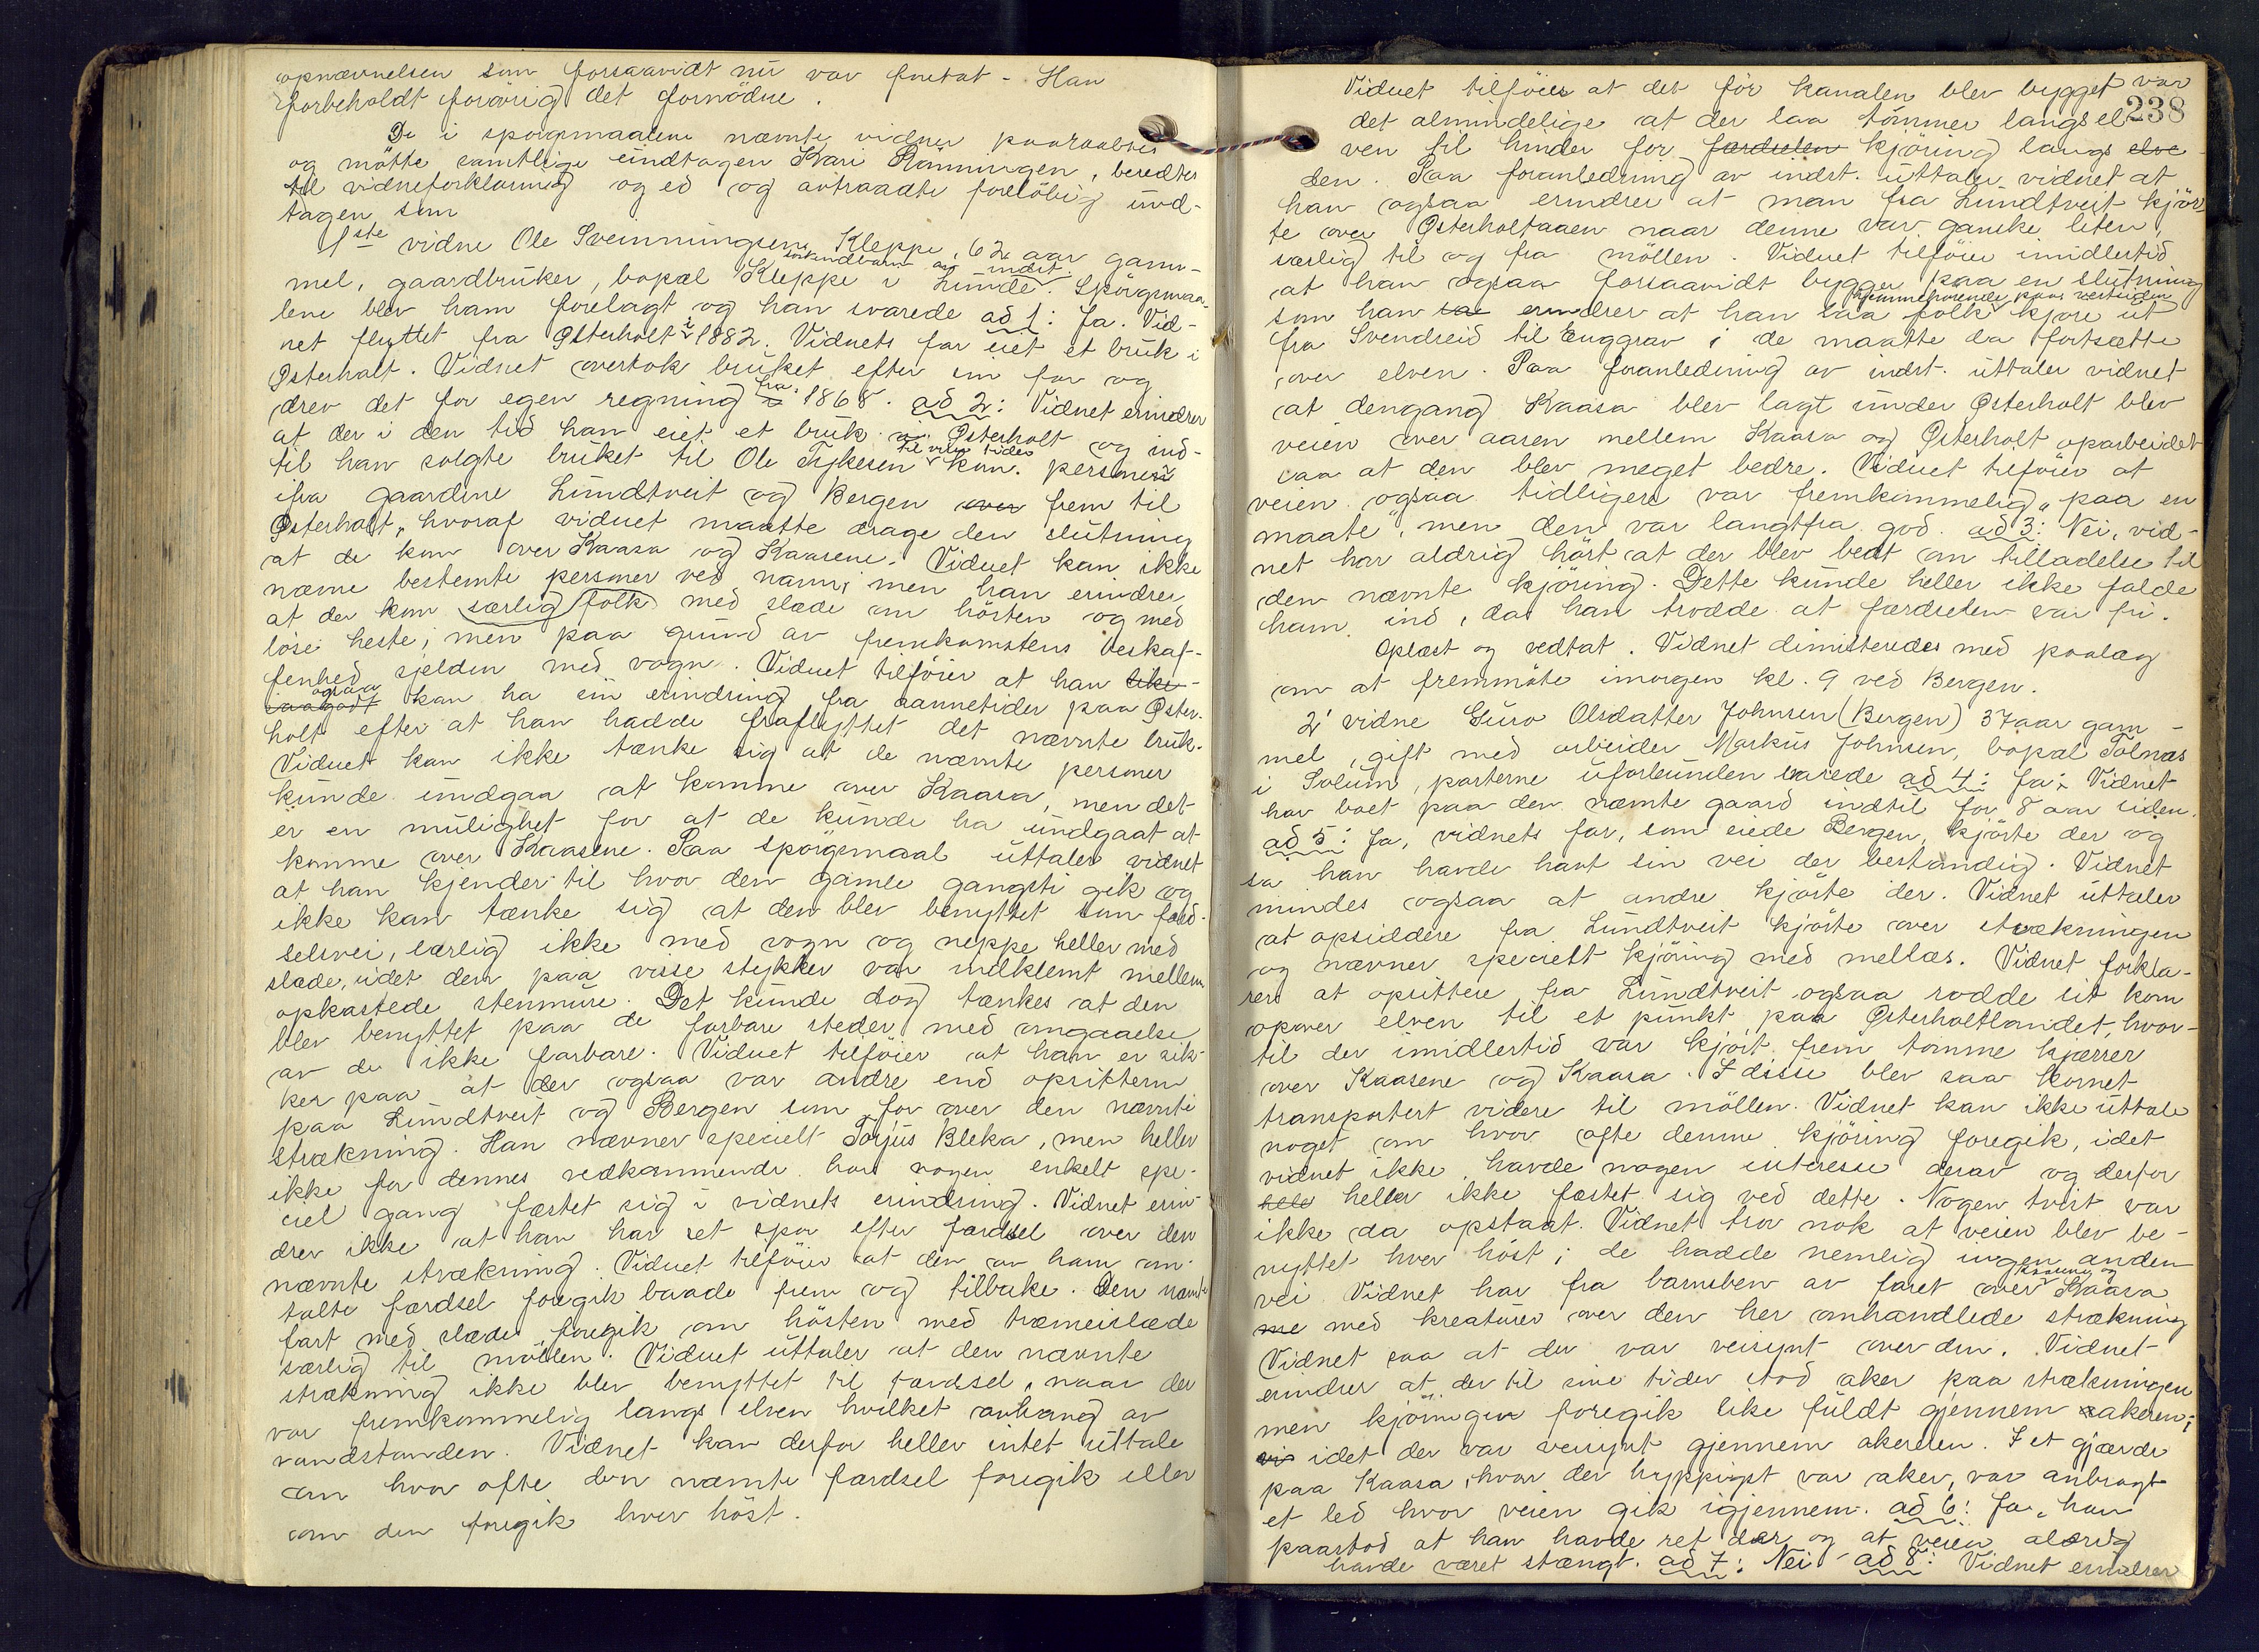 opnævnelsen som forsaavidt nu var foretat - Han
forbeholdt forøvrig det fornödne.
De i spörgsmaalene nævnte vidner paaraabtes
og mötte samtlige undtagen Kari Rönningen, beredtes
til vidneforklaring og ed og avtraadte foreløbig und-
tagen som
1ste vidne Ole Sveinningsen Kleppe, 62 aar gam-
söskendbarn av indst.
mel, gaardbruker, bopæl Kleppe i Lunde. Spörgsmaa-
lene blev ham forelagt og han svarede ad 1: Ja. Vid-
net flyttet fra Østerholt i 1882. Vidnets far eiet et bruk i
Østerholt. Vidnet overtok bruket efter sin far og
drev det for egen regning fra 1868. ad 2: Vidnet erindrer
at der i den tid han eiet et bruk i Østerholt og ind-
til han solgte bruket til Ole Tykesen til visse tider kom personer
ifra gaardene Lundtveit og Bergen over frem til
Østerholt, hvoraf vidnet maatte drage den slutning
at de kom over Kaasa og Kaasene. Vidnet kan ikke
nævne bestemte personer ved navn, men han erindrer
at der kom særlig folk med slæde om hösten og med
löse heste, men paa grund av fremkomstens beskaf-
fenhed sjelden med vogn. Vidnet tilföier at han like
saagodt ogsaa kan ha sin erindring fra aannetider paa Øster-
holt efter at han hadde fraflyttet det nævnte bruk.
Vidnet kan ikke tænke sig at de nævnte personer
kunde undgaa at komme over Kaasa, men det
er en mulighet for at de kunde ha undgaat at
komme over Kaasene. Paa spörgsmaal uttaler vidnet
at han kjender til hvor den gamle gangsti gik og
ikke kan tænke sig at den blev benyttet som færd-
selsvei, særlig ikke med vogn og neppe heller med
slæde, idet den paa visse stykker var indklemt mellem
opkastede stenmure. Det kunde dog tænkes at den
blev benyttet paa de farbare steder med omgaaelse
av de ikke farbare. Vidnet tilföier at han er sik-
ker paa at der ogsaa var andre end opsittern
paa Lundtveit og Bergen som for over den nævnte
strækning. Han nævner specielt Torjus Bleka, men heller
ikke for dennes vedkommende har nogen enkelt spe-
ciel gang fæstet sig i vidnets erindring. Vidnet erin-
drer ikke at han har set spor efter færdsel over den
nævnte strækning. Vidnet tilföier at den av ham om-
talte færdsel foregik baade frem og tilbake. Den nævnte
fart med slæde foregik om hösten med træmeislæde
særlig til möllen. Vidnet uttaler at den nævnte
strækning ikke blev benyttet til færdsel, naar der
var fremkommelig langs elven hvilket avhang av
vandstanden. Vidnet kan derfor heller intet uttale
om hvor ofte den nævnte færdsel foregik eller
om den foregik hver höst.
238
Vidnet tilföier at det för kanalen blev bygget var
det almindelige at der laa tömmer langs el-
ven til hinder for færdselen kjöring langs elve
den. Paa foranledning av indst. uttaler vidnet at
han ogsaa erindrer at man fra Lundtveit kjör-
te over Østerholtaaen naar denne var ganske liten,
særlig til og fra möllen. Vidnet tilföier imidlertid
at han ogsaa forsaavidt bygger paa en slutning
hjemmehörende paa vestsiden
som han saa erindrer at han saa folk kjöre ut
fra Svendseid til Enggrav, de maatte da fortsætte
over elven. Paa foranledning av indst. uttaler vidnet
at dengang Kaasa blev lagt under Østerholt blev
veien over aasen mellem Kaasa og Østerholt oparbeidet
saa at den blev meget bedre. Vidnet tilföier at
veien ogsaa tidligere var fremkommelig „paa en
maate", men den var langtfra god. ad 3: Nei, vid-
net har aldrig hört at der blev bedt om tilladelse til
den nævnte kjöring. Dette kunde heller ikke falde
ham ind, da han trodde at færdselen var fri.
Oplæst og vedtat. Vidnet dimitteredes med paalæg
om at fremmöte imorgen kl. 9 ved Bergen.
2' vidne Guro Olsdatter Johnsen (Bergen) 37 aar gam-
mel, gift med arbeider Markus Johnsen, bopæl Tolnæs
i Solum, parterne uforbunden svarede ad 4: Ja; Vidnet
har boet paa den nævnte gaard indtil for 8 aar siden.
ad 5: Ja, vidnets far, som eiede Bergen, kjörte der og
sa han havde havt sin vei der bestandig. Vidnet
mindes ogsaa at andre kjörte der. Vidnet uttaler
at opsiddere fra Lundtveit kjörte over strækningen
og nævner specielt kjöring med mellæs. Vidnet forkla-
rer at opsittere fra Lundtveit ogsaa rodde sit korn
opover elven til et punkt paa Østerholtlandet, hvor-
til der imidlertid var kjört frem tomme kjærrer
over Kaasene og Kaasa. I disse blev saa kornet
transportert videre til möllen. Vidnet kan ikke uttale
noget om hvor ofte denne kjöring foregik, idet
vidnet ikke havde nogen interesse derav og derfor
hele heller ikke fæstet sig ved dette. Nogen tvist var
ikke da opstaat. Vidnet tror nok at veien blev be-
nyttet hver höst; de hadde nemlig ingen anden
vei. Vidnet har fra barnsben av faret over Kaasene og Kaasa
me med kreaturer over den her omhandlede strækning
Vidnet saa at der var veisynt over den. Vidnet
erindrer at der til sine tider stod aker paa strækningen
men kjöringen foregik like fuldt gjennem akeren;
vis idet der var veisynt gjennem akeren. I et gjærde
paa Kaasa, hvor der hyppigst var aker, var anbragt
et led hvor veien gik igjennem. ad 6: Ja, han
paastod at han havde ret der og at veien aldrig
havde været stængt. ad 7: Nei - ad 8: Vidnet erindrer